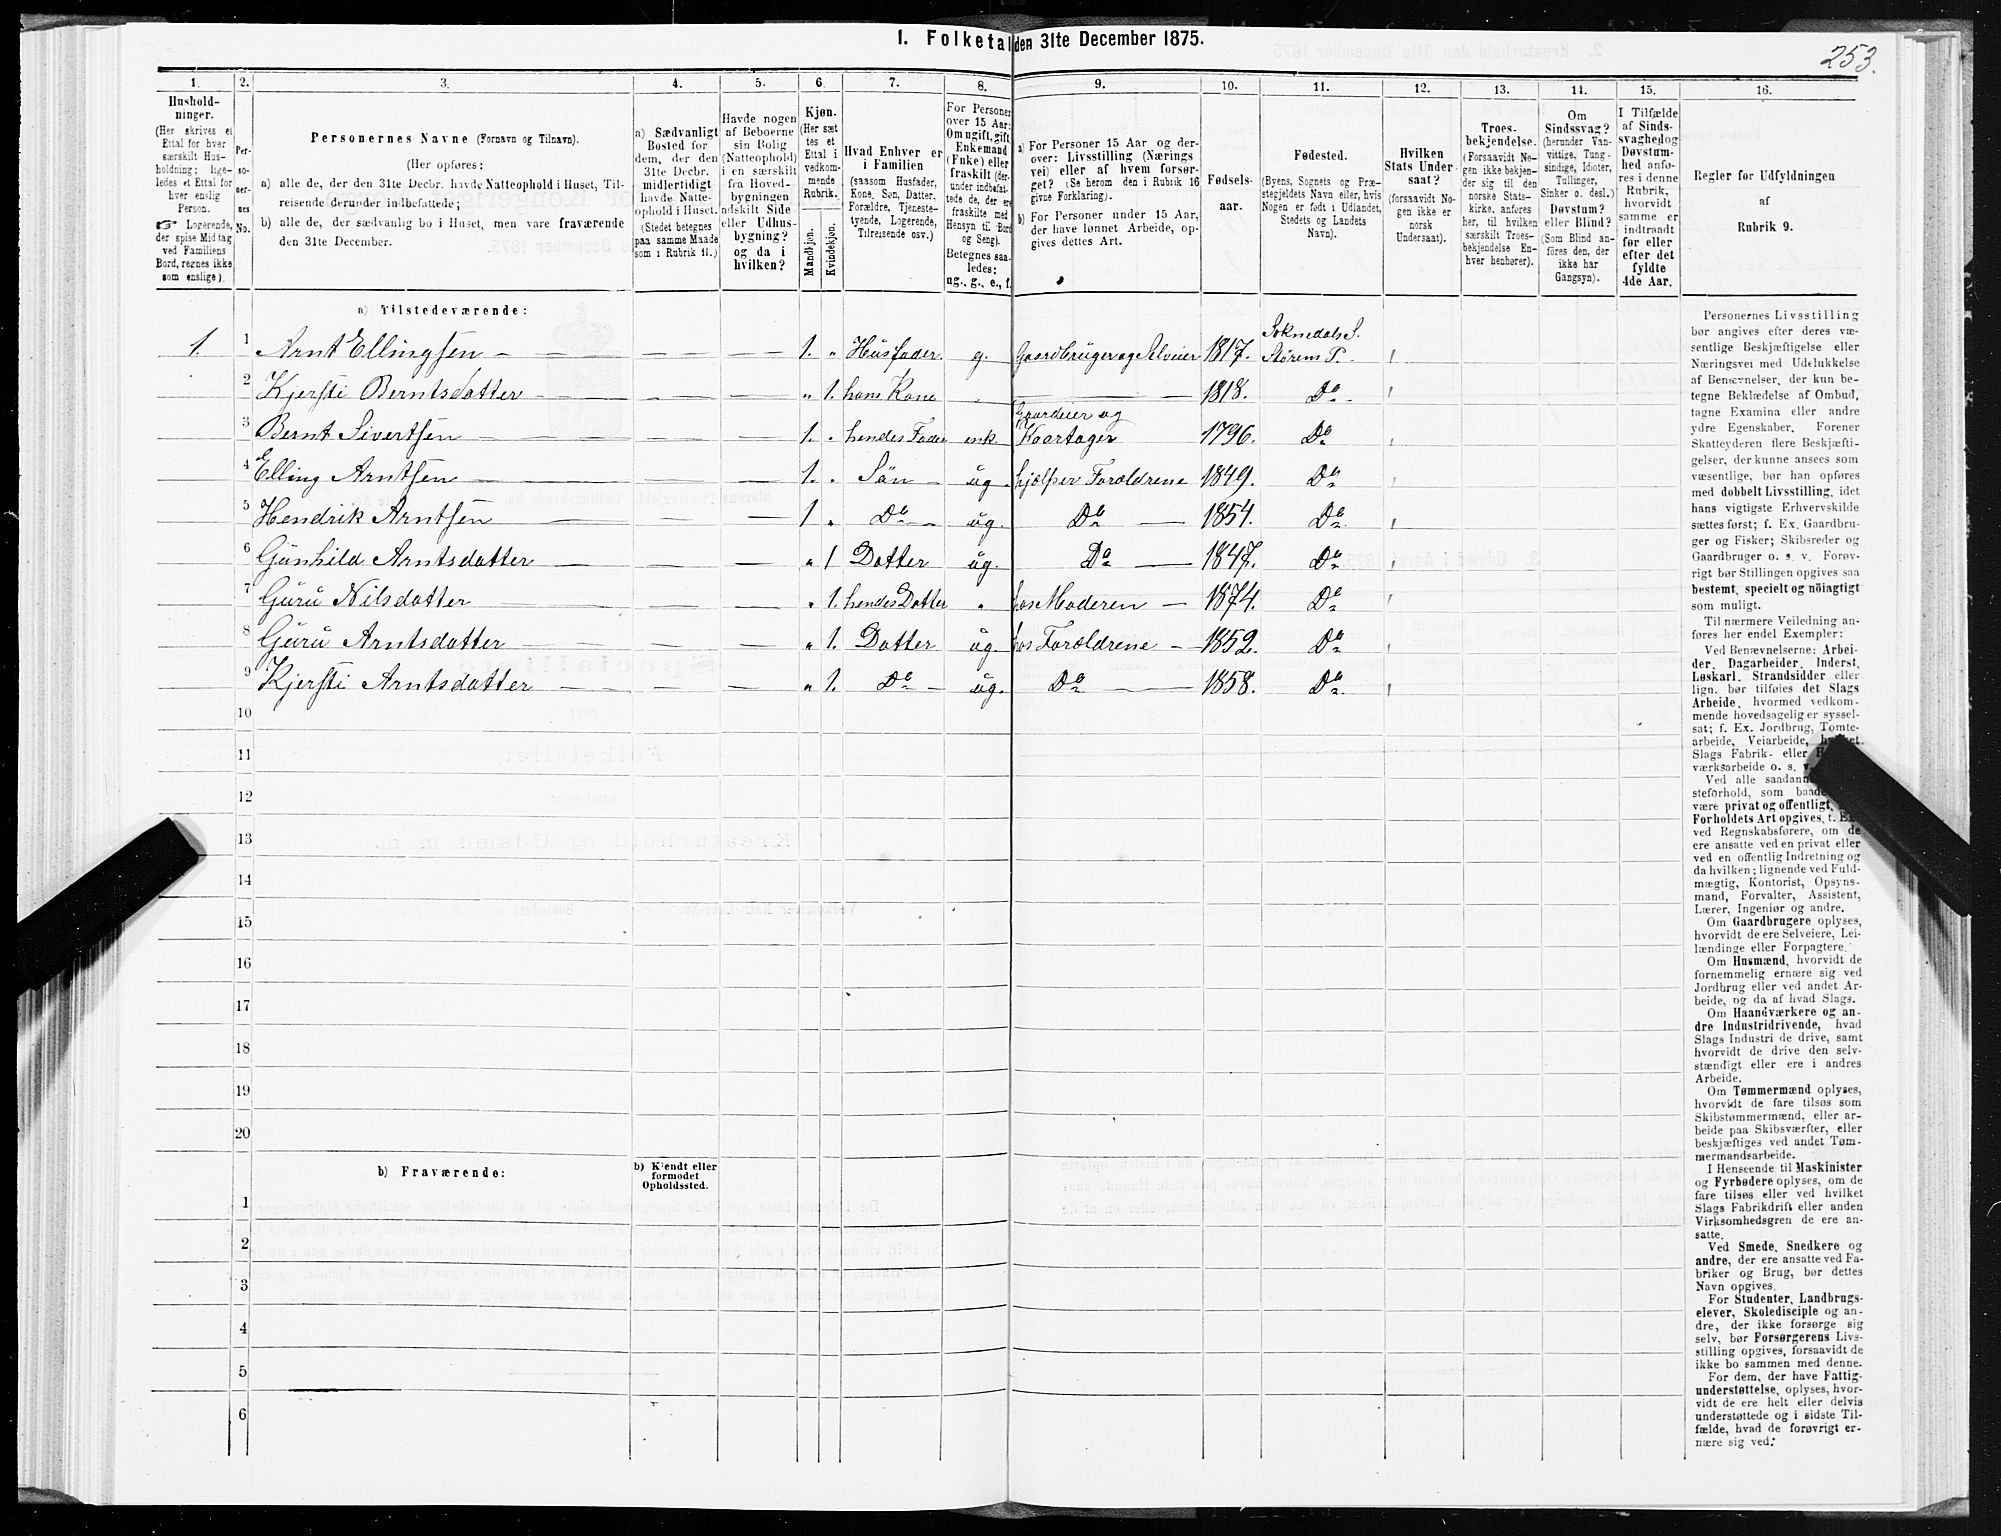 1. Folketal den 31te December 1875.
253.
1. 2. 3. 4. 5. 6. 7. 8. 9. 10. 11. 12. 13. 14. 15. 16.
Hushold-
ninger.
(Her skrives et
Ettal for hver
særskilt Hus-
holdning; lige-
ledes et Ettal for
hver enslig
Person.
☞ Logerende,
der spise Middag
ved Familiens
Bord, regnes ikke
som enslige).
Per-
so-
ner-
nes
No.
Personernes Navne (Fornavn og Tilnavn).
(Her opføres:
a) alle de, der den 31te Decbr. havde Natteophold i Huset, Til-
reisende derunder indbefattede;
b) alle de, der sædvanlig bo i Huset, men vare fraværende
den 31te December.
a) Sædvanligt
Bosted for
dem, der den
31te Decbr.
midlertidigt
havde Natte-
ophold i Huset.
(Stedet betegnes
paa samme Maade
som i Rubrik 11.)
Havde nogen
af Beboerne
sin Bolig
(Natteophold)
i en særskilt
fra Hoved-
bygningen
adskilt Side
eller Udhus-
bygning?
og da i
hvilken?
Kjøn.
(Her sæt-
tes et
Ettal i
vedkom-
mende
Rubrik.
Mandkjøn.
Kvindekjøn.
Hvad Enhver er
i Familien
(saasom Husfader,
Kone, Søn, Datter,
Forældre, Tjeneste-
tyende, Logerende,
Tilreisende osv.)
For Personer
over 15 Aar:
Om ugift, gift,
Enkemand
(Enke) eller
fraskilt (der-
under indbefat-
tede de, der ere
fraskilte med
Hensyn til Bord
og Seng).
Betegnes saa-
ledes:
ug., g., e., f.
a) For Personer 15 Aar og der-
over: Livsstilling (Nærings
vei) eller af hvem forsør-
get? (Se herom den i Rubrik 16
givne Forklaring).
b) For Personer under 15 Aar,
der have lønnet Arbeide, op-
gives dettes Art.
Fødsels-
aar.
Fødested.
(Byens, Sognets og Præ-
stegjeldets Navn eller, hvis
Nogen er født i Udlandet,
Stedets og Landets
Navn).
Hvilken
Stats Under-
saat?
(forsaavidt No-
gen ikke er
norsk
Undersaat).
Troes-
bekjendelse.
(Forsaavidt No-
gen ikke bekjen-
der sig til den
norske Stats-
kirke, anføres
her, til hvilken
særskilt Troes-
bekjendelse En-
hver henhører).
Om
Sindssvag?
(herunder Van-
vittige, Tung-
sindige, Idioter,
Tullinger,
Sinker o. desl.)
Døvstum?
eller Blind?
(Som Blind an-
føres den, der
ikke har
Gangsyn).
I Tilfælde
af Sinds-
svaghed og
Døvstum-
hed anfø-
res i denne
Rubrik,
hvorvidt
samme er
indtraadt
før eller
efter det
fyldte
4de Aar.
Regler for Udfyldningen
af
Rubrik 9.
a) Tilstedeværende:
1. 1 Arnt Ellingsen — — — 1. " Husfader g. Gaardbruger og Selveier 1817. Soknedals S. Størens P.
2 Kjersti Berntsdatter — — — " 1. hans Kone 1818. Do
3 Bernt Sivertsen — — — 1. " hendes Fader enk. Gaardeier og Kaartager 1796. Do
4 Elling Arntsen — — — 1. " Sön — ug. hjælper Forældrene 1849. Do
5 Hendrik Arntsen — — — 1 " Do — ug. Do — 1854. Do
6 Gunhild Arntsdatter — — " 1 Datter ug. Do — 1847. Do
7 Guru Nilsdatter — — — " 1. hendes Datter " hos Moderen — 1874. Do
8 Guru Arntsdatter — — — " 1. Datter ug. hos Forældrene — 1852. Do
9 Kjersti Arntsdatter — — — " 1. Do — ug. Do — 1858. Do
10
11
12
13
14
15
16
17
18
19
20
b) Fraværende:
b) Kjendt eller
formodet
Opholdssted.
1
2
3
4
5
6
Personernes Livsstilling
bør angives efter deres væ-
sentlige Beskjæftigelse eller
Næringsvei med Udelukkelse
af Benævnelser, der kun be-
tegne Beklædelse af Ombud,
tagne Examina eller andre
ydre Egenskaber. Forener
Skatteyderen flere Beskjæfti-
gelser, der kunne ansees som
væsentlige, bør han opføres
med dobbelt Livsstilling, idet
hans vigtigste Erhvervskilde
sættes først; f. Ex. Gaardbru-
ger og Fisker; Skibsreder og
Gaardbruger o. s. v. Forøv-
rigt bør Stillingen opgives saa
bestemt, specielt og nöiagtigt
som muligt.
Til nærmere Veiledning an-
føres her endel Exempler:
Ved Benævnelserne: Arbei-
der, Dagarbeider, Inderst,
Løskarl, Strandsidder eller
lign. bør tilføies det Slags
Arbeide, hvormed vedkom-
mende hovedsagelig er syssel-
sat; f. Ex. Jordbrug, Tomte-
arbeide, Veiarbeide,
Slags Fabrik- eller
værksarbeide o. s. v.
Ved alle saadanne
steforhold, som baade
være privat og offentligt,
Forholdets Art opgives, t. Ex.
ved Regnskabsførere, om de
ere ansatte ved en privat eller
ved en offentlig Indretning og
da hvilken; lignende ved Fuld-
mægtig, Kontorist, Opsyns-
mand, Forvalter, Assistent,
Lærer, Ingeniør og andre.
Om Gaardbrugere oplyses,
hvorvidt de ere Selveiere, Lei-
lændinge eller Forpagtere.
Om Husmænd, hvorvidt de
fornemmelig ernære sig ved
Jordbrug eller ved andet Ar-
beide, og da af hvad Slags.
Om Haandværkere og an-
dre Industridrivende, hvad
Slags Industri de drive, samt
hvorvidt de drive den selv-
stændigt eller ere i andres
Arbeide.
Om Tømmermænd oplyses,
hvorvidt de fare tilsøs som
Skibstømmermænd, eller ar-
beide paa Skibsværfter, eller
beskjæftiges ved andet Tøm-
mermandsarbeide.
I Henseende til Maskinister
og Fyrbødere oplyses, om de
fare tilsøs eller ved hvilket
Slags Fabrikdrift eller anden
Virksomhedsgren de ere an-
satte.
Ved Smede, Snedkere og
andre, der ere ansatte ved Fa-
briker og Brug, bør dettes
Navn opgives.
For Studenter, Landbrugs-
elever, Skoledisciple og an-
dre, der ikke forsørge sig
selv, bør Forsørgerens Livs-
stilling opgives, forsaavidt de
ikke bo sammen med denne.
For dem, der have Fattig-
understøttelse, oplyses, hvor-
vidt de ere helt eller delvis
understøttede og i sidste Til-
fælde, hvad de forøvrigt er-
nære sig ved.